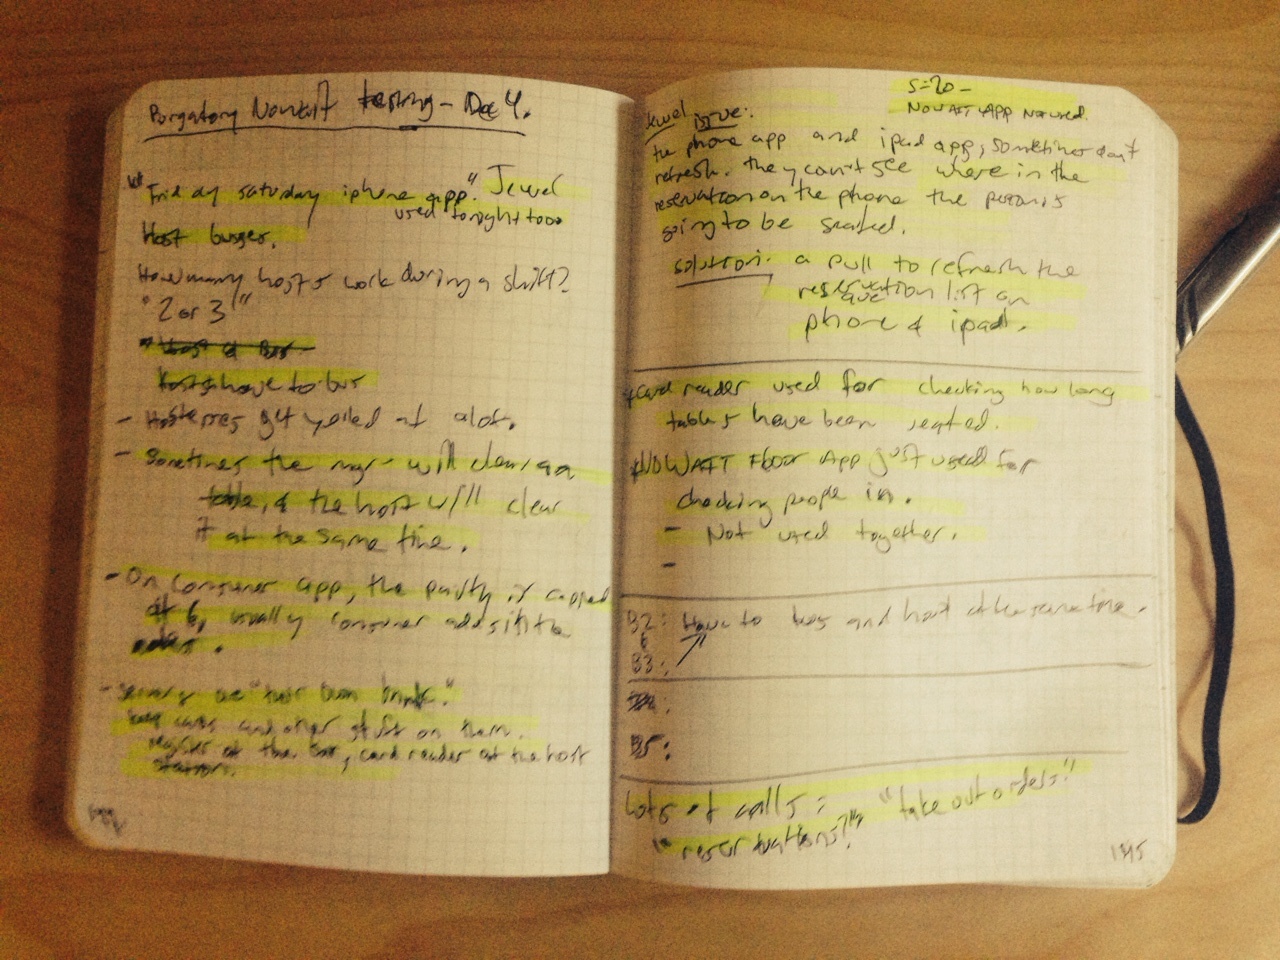 Purgatory Nowait testing - Dec 4.
"Friday saturday iphone app." Jewel
used tonight tooo
Host busser.
How many hosts work during a shift?
"2 or 3"
Hosts have to bus
- Hostesses get yelled at alot.
- Sometimes the mgr will clear a
table, & the host will clear
it at the same time.
- On consumer app, the party is capped
at 6, usually consumer adds it in the
notes.
- Servers are "their own bank."
keep cash and other stuff on them.
register at the bar, card reader at the host
station.
5:20 -
NOWAIT APP not used.
Jewel issue:
the phone app and ipad app, sometimes don't
refresh. they can't see where in the
reservation on the phone the person is
going to be seated.
solution: a pull to refresh the
reservation list on
que
phone & ipad.
* Card reader used for checking how long
tables have been seated.
* NOWAIT Floor App just used for
checking people in.
- Not used together.
-
B2: Have to bus and host at the same time.
B3:
B5:
Lots of calls:
"reservations?" "take out orders?"